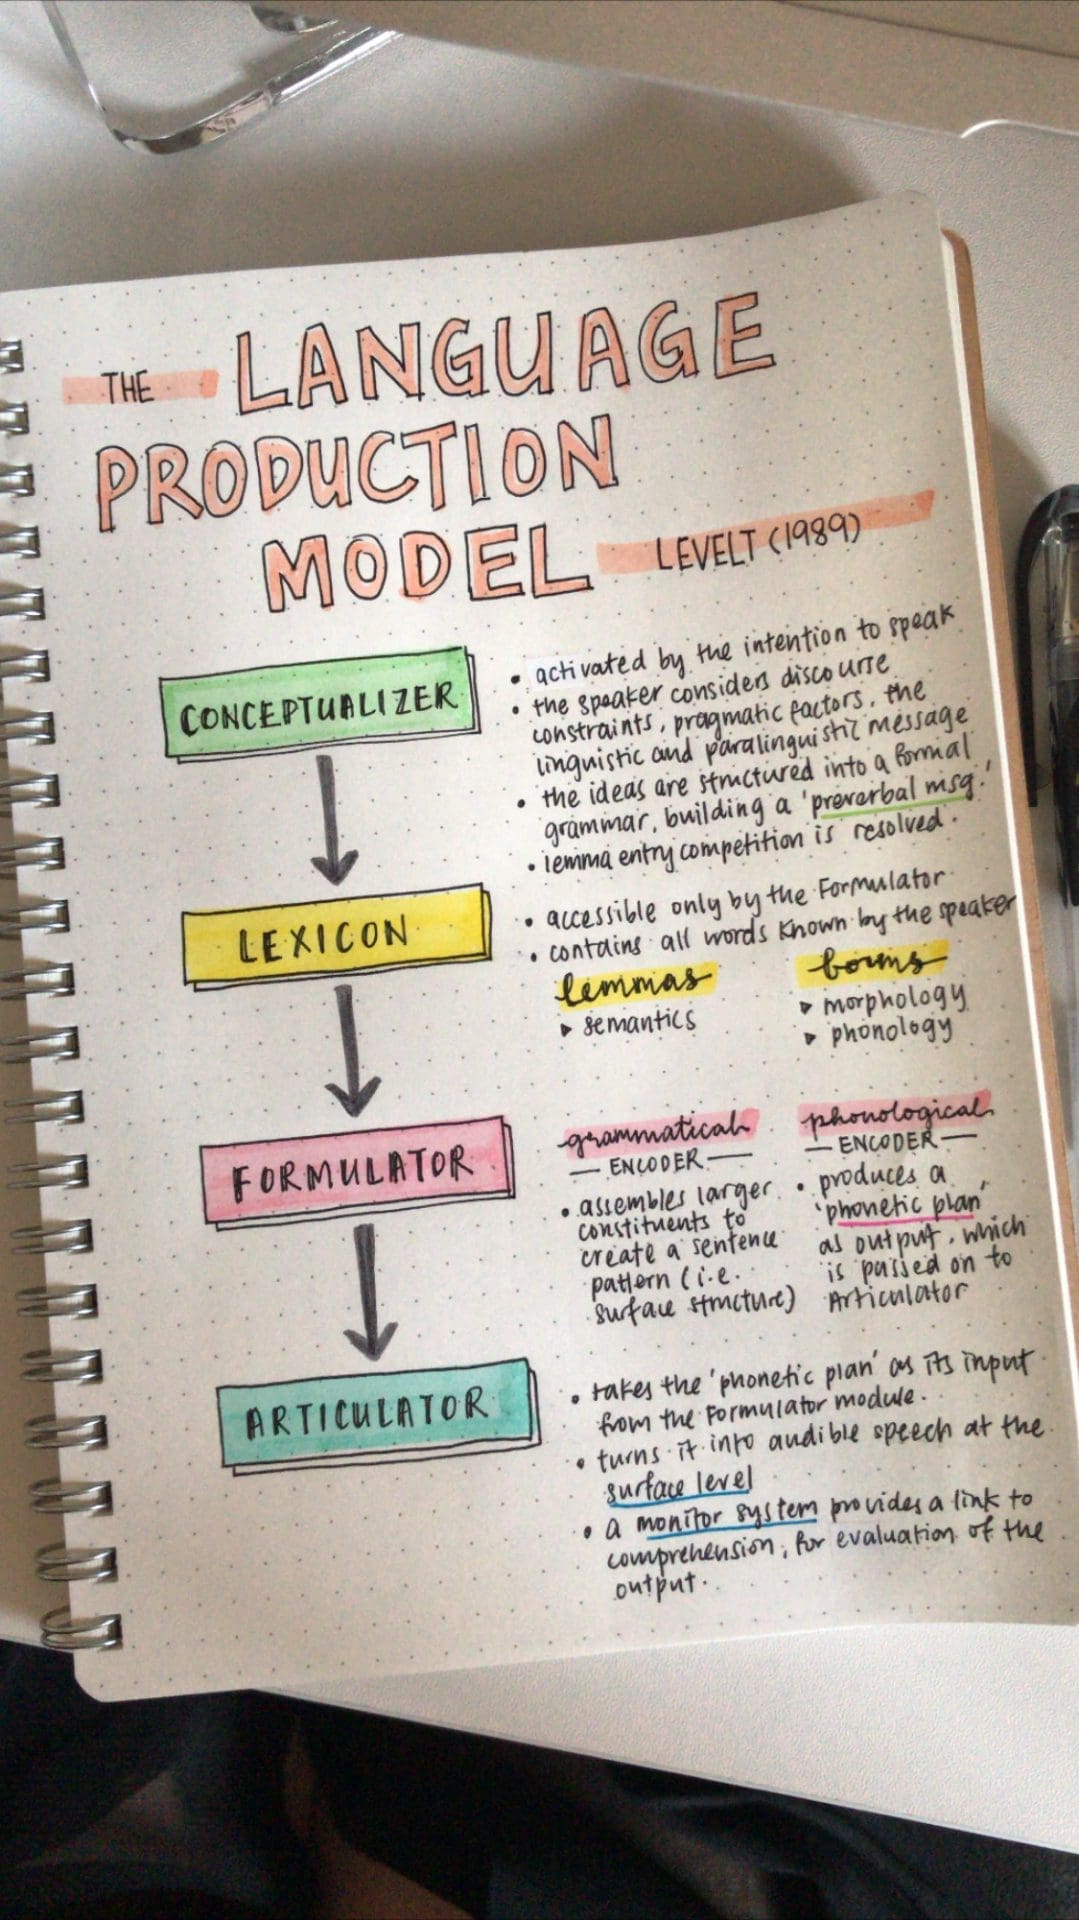 THE LANGUAGE
PRODUCTION
MODEL LEVELT (1989)
CONCEPTUALIZER
• activated by the intention to speak
• the speaker considers discourse
constraints, pragmatic factors, the
linguistic and paralinguistic message
• the ideas are structured into a formal
grammar, building a 'preverbal msg.'
• lemma entry competition is resolved.
LEXICON
• accessible only by the Formulator
• contains all words known by the speaker
lemmas
▸ semantics
forms
▸ morphology
▸ phonology
FORMULATOR
grammatical
— ENCODER —
• assembles larger
constituents to
create a sentence
pattern (i.e.
surface structure)
phonological
— ENCODER —
• produces a
'phonetic plan'
as output, which
is passed on to
Articulator
ARTICULATOR
• takes the 'phonetic plan' as its input
from the Formulator module.
• turns it into audible speech at the
surface level
• a monitor system provides a link to
comprehension, for evaluation of the
output.